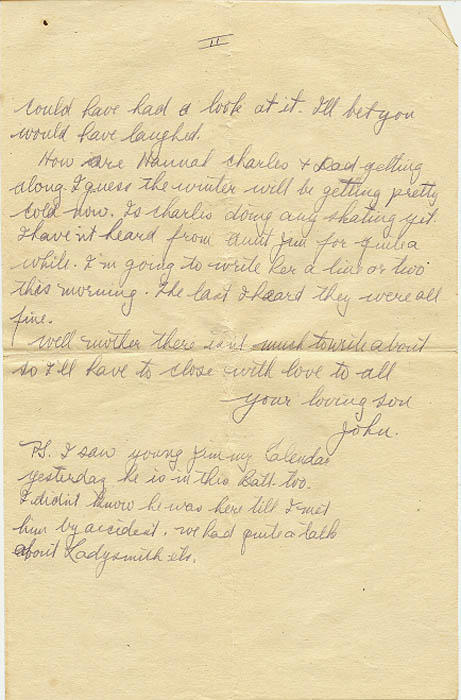 II
could have had a look at it. I'll bet you
would have laughed.
How are Hannah Charles & Dad getting
along. I guess the winter will be getting pretty
cold now. Is Charles doing any skating yet.
I have'nt heard from Aunt Jim for quite a
while. I'm going to write her a line or two
this morning. The last I heard they were all
fine.
Well mother there isnt much to write about
so I'll have to close with love to all
your loving son
John.
P.S. I saw young Jimmy
yesterday he is in this Batt. too.
I did'nt know he was here till I met
him by accident. we had quite a talk
about Ladysmith etc.